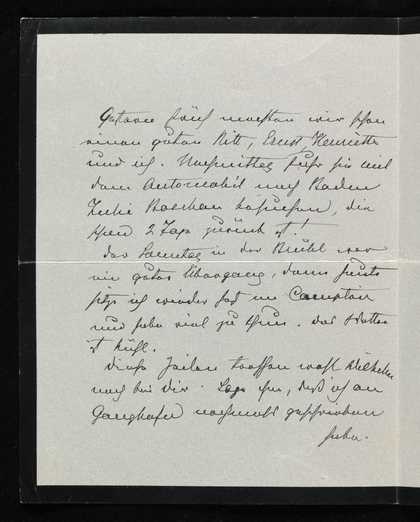 Gestern früh machten wir schon
einen guten Ritt, Ernst, Henriette
und ich. Nachmittag fuhr sie mit
dem Automobil nach Baden
Julie besuchen, die
schon 2 Tage zurück ist!
Der Samstag in der Brühl war
ein guter Übergang, denn heute
sitze ich wieder fest im Comptoir
und habe viel zu thun. Das Wetter
ist kühl.
Diese Zeilen treffen wohl Wilhelm
noch bei Dir. Sage ihm, daß ich an
Ganghofer nochmals geschrieben
habe.